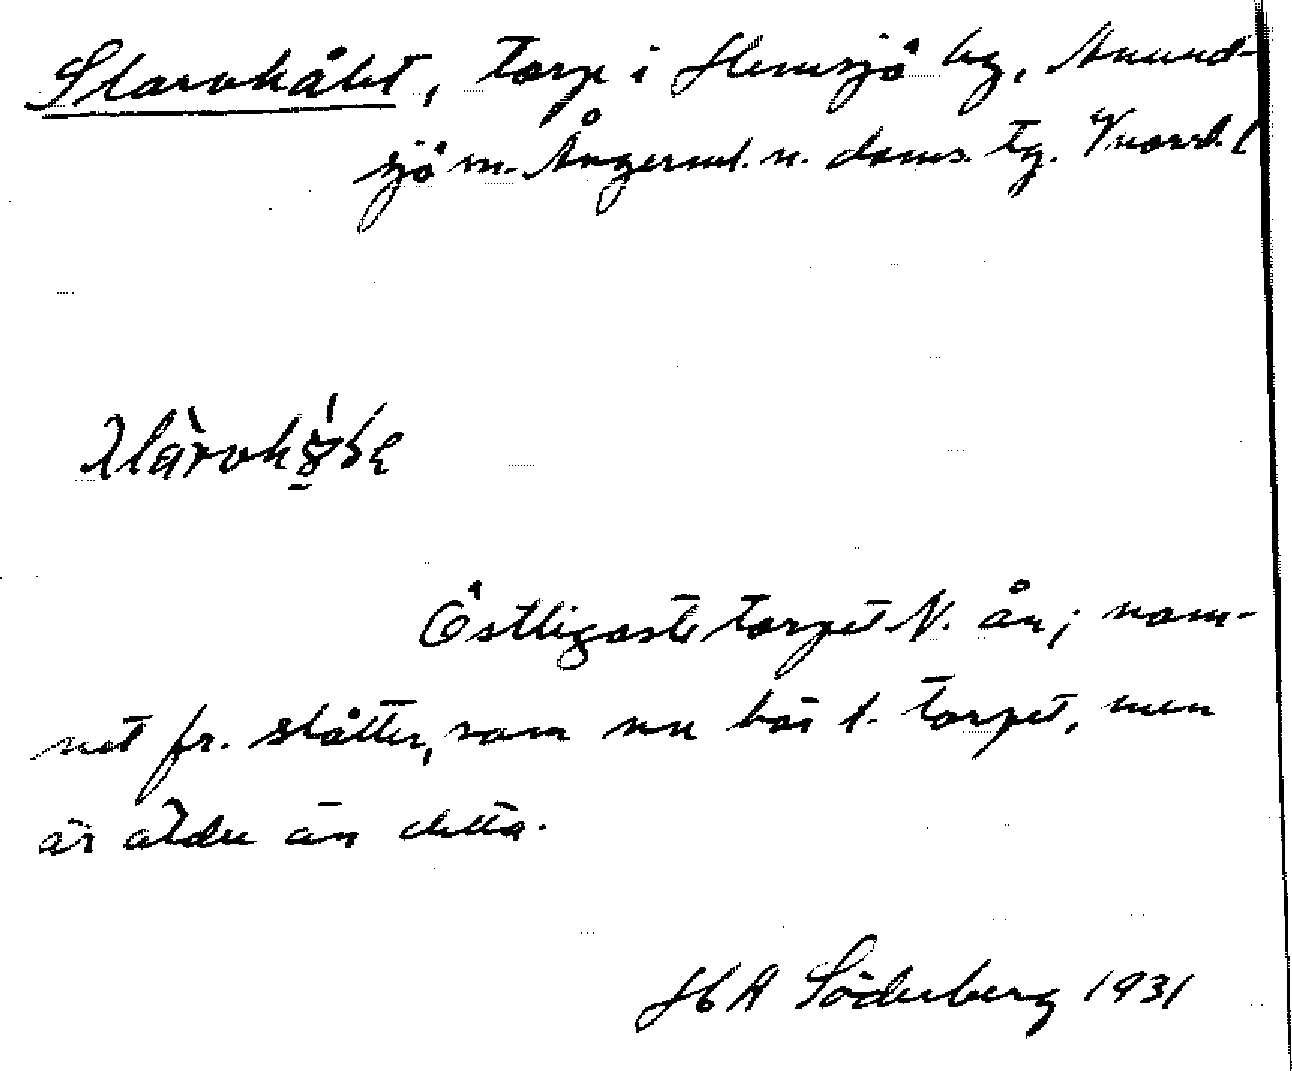 Slarvhålet, torp i Hemsjö by, Anund-
sjö sn. Ångerml. n. doms. tg. Vnorrl. l
Östligaste torpet N. ån; nam-
net fr. slåtter, som nu hör t. torpet, men
är äldre än detta.
HA Söderberg 1931